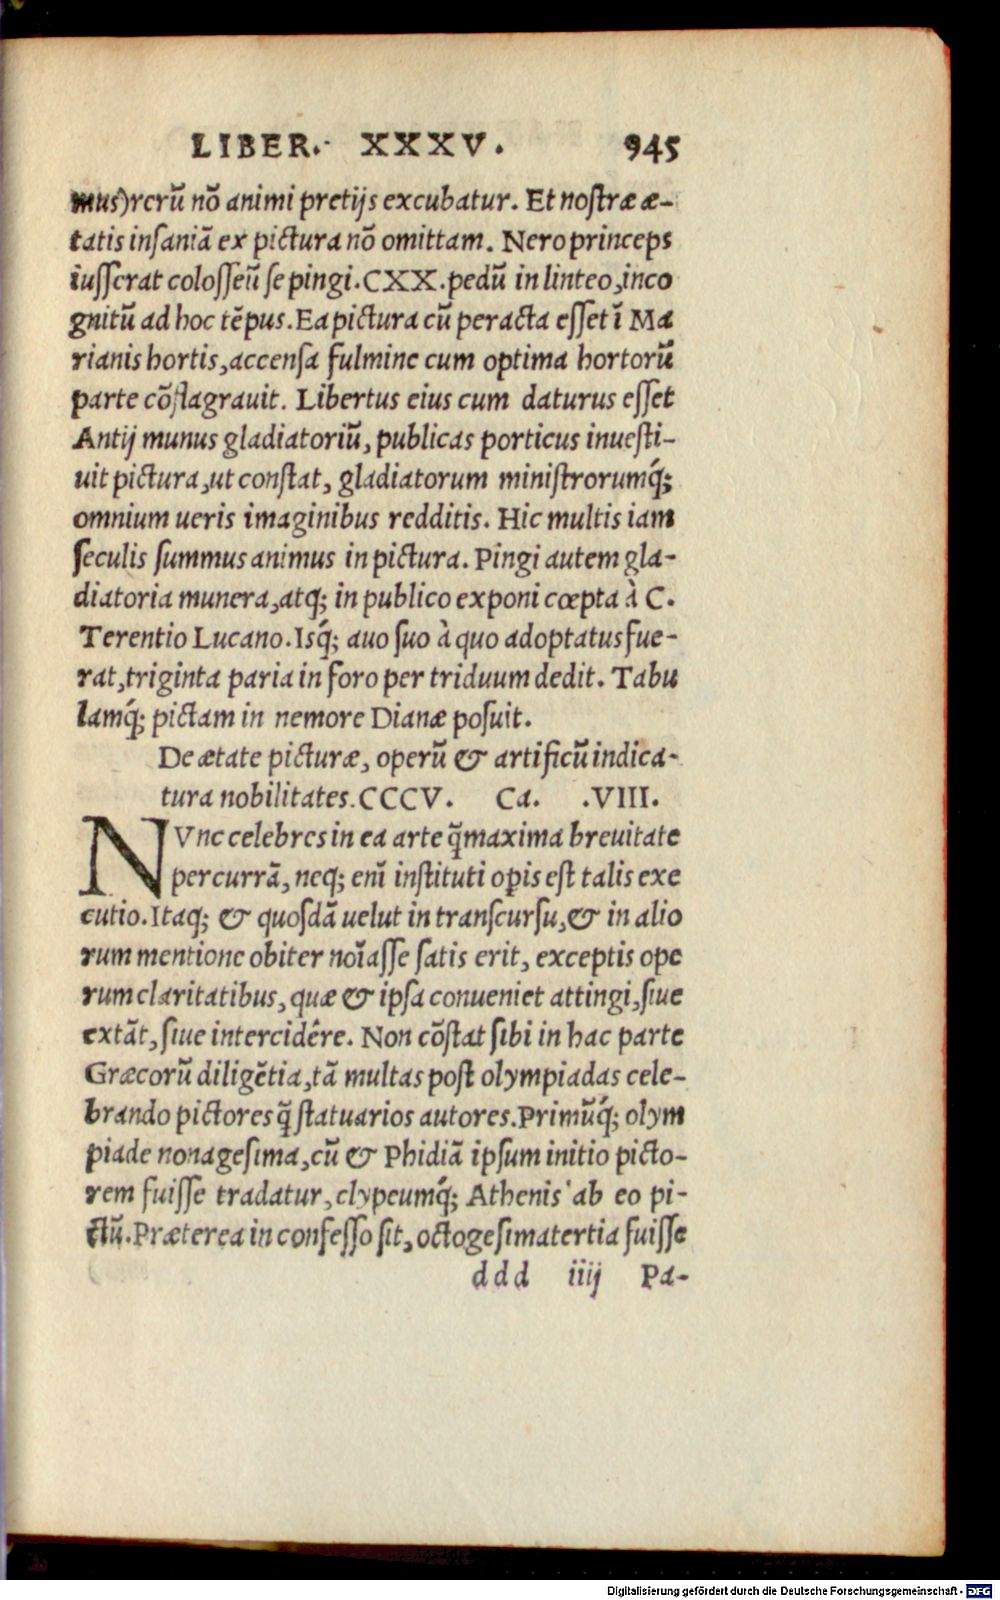 LIBER. XXXV. 945
mus) rerū nō animi pretijs excubatur. Et nostræ æ-
tatis insaniā ex pictura nō omittam. Nero princeps
iusserat colosseū se pingi. CXX. pedū in linteo, inco
gnitū ad hoc tēpus. Ea pictura cū peracta esset ī Ma
rianis hortis, accensa fulmine cum optima hortorū
parte cōflagrauit. Libertus eius cum daturus esset
Antij munus gladiatoriū, publicas porticus inuesti-
uit pictura, ut constat, gladiatorum ministrorumq́;
omnium ueris imaginibus redditis. Hic multis iam
seculis summus animus in pictura. Pingi autem gla-
diatoria munera, atq; in publico exponi cœpta à C.
Terentio Lucano. Isq́; auo suo à quo adoptatus fue-
rat, triginta paria in foro per triduum dedit. Tabu
lamq́; pictam in nemore Dianæ posuit.
De ætate picturæ, operū & artificū indica-
tura nobilitates. CCCV. Ca. .VIII.
NVnc celebres in ea arte q̃maxima breuitate
percurrā, neq; enī instituti opis est talis exe
cutio. Itaq; & quosdā uelut in transcursu, & in alio
rum mentione obiter noīasse satis erit, exceptis ope
rum claritatibus, quæ & ipsa conueniet attingi, siue
extāt, siue intercidêre. Non cōstat sibi in hac parte
Græcorū diligētia, tā multas post olympiadas cele-
brando pictores q̃ statuarios autores. Primūq́; olym
piade nonagesima, cū & Phidiā ipsum initio picto-
rem fuisse tradatur, clypeumq́; Athenis ab eo pi-
ctū. Præterea in confesso sit, octogesimatertia fuisse
ddd iiij Pa-
Digitalisierung gefördert durch die Deutsche Forschungsgemeinschaft - DFG